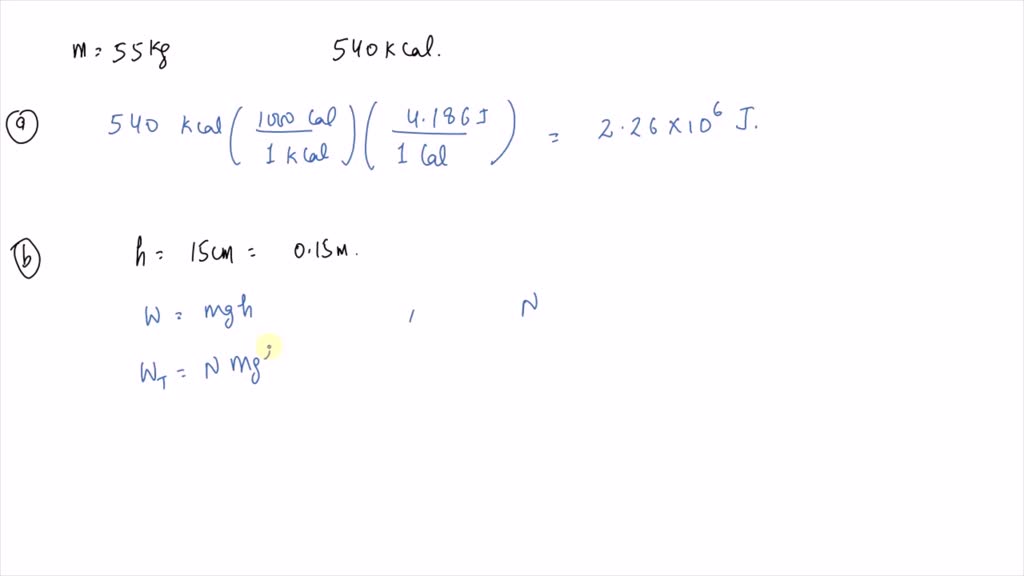 m = 55kg 540 kCal.
(a) 540 kCal (1000 Cal / 1 kCal) (4.186 J / 1 Cal) = 2.26 × 10⁶ J.
(b) h = 15cm = 0.15m.
W = mgh , N
W_T = N mg